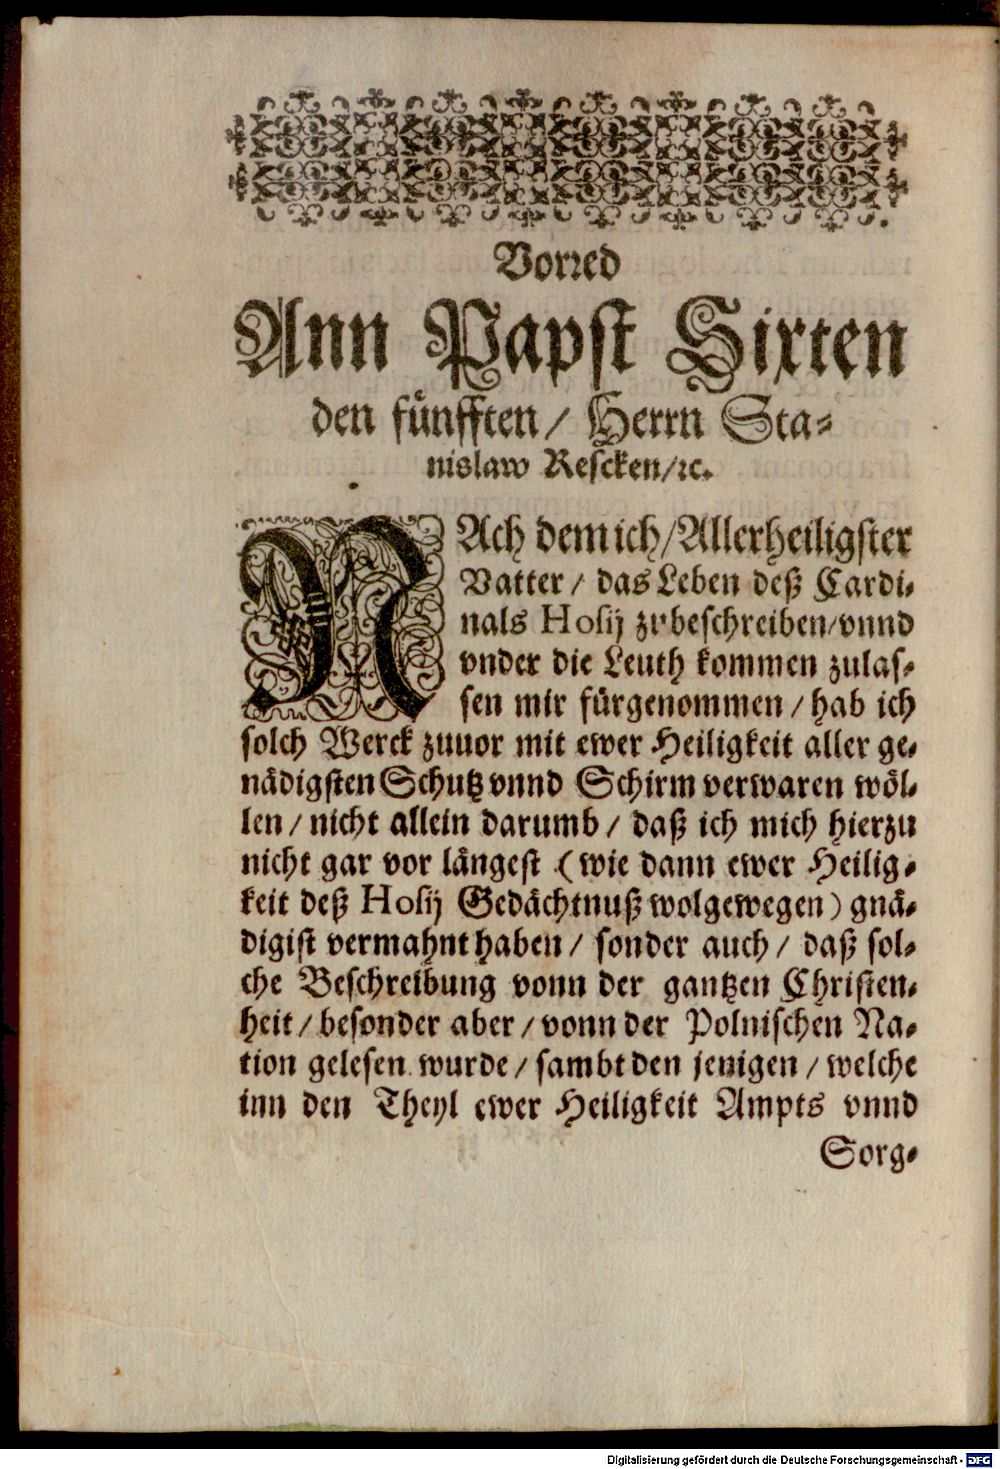 Vorred
Ann Papst Sixten
den fünfften / Herrn Sta-
nislaw Rescken / ꝛc.
NAch dem ich / Allerheiligster
Vatter / das Leben deß Cardi-
nals Hosij zubeschreiben / vnnd
vnder die Leuth kommen zulas-
sen mir fürgenommen / hab ich
solch Werck zuuor mit ewer Heiligkeit aller ge-
nädigsten Schutz vnnd Schirm verwaren wöl-
len / nicht allein darumb / daß ich mich hierzu
nicht gar vor längest (wie dann ewer Heilig-
keit deß Hosij Gedächtnuß wolgewegen) gnä-
digist vermahnt haben / sonder auch / daß sol-
che Beschreibung vonn der gantzen Christen-
heit / besonder aber / vonn der Polnischen Na-
tion gelesen wurde / sambt den jenigen / welche
inn den Theyl ewer Heiligkeit Ampts vnnd
Sorg-
Digitalisierung gefördert durch die Deutsche Forschungsgemeinschaft - DFG